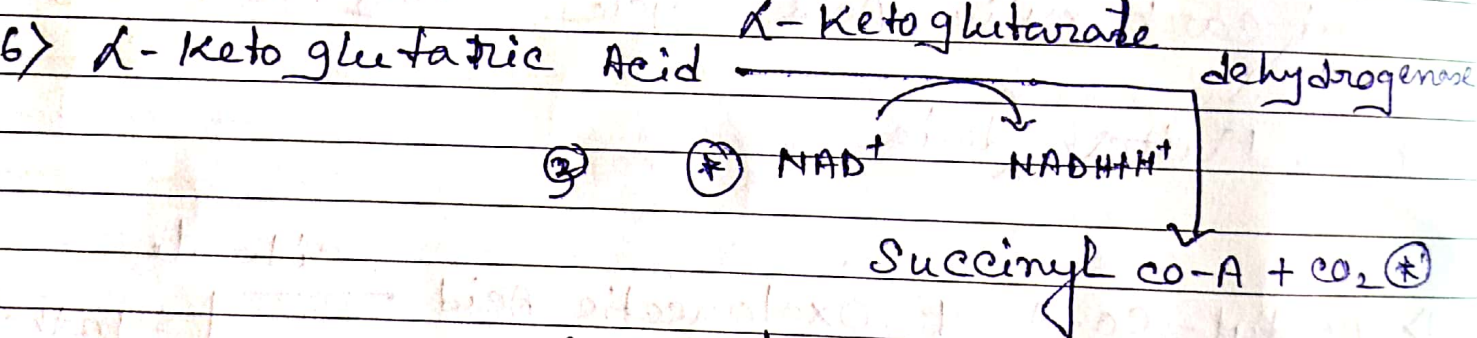 α-Ketoglutarate
6> α-Keto glutaric Acid dehydrogenase
③ * NAD⁺ NADH+H⁺
Succinyl co-A + CO₂ *